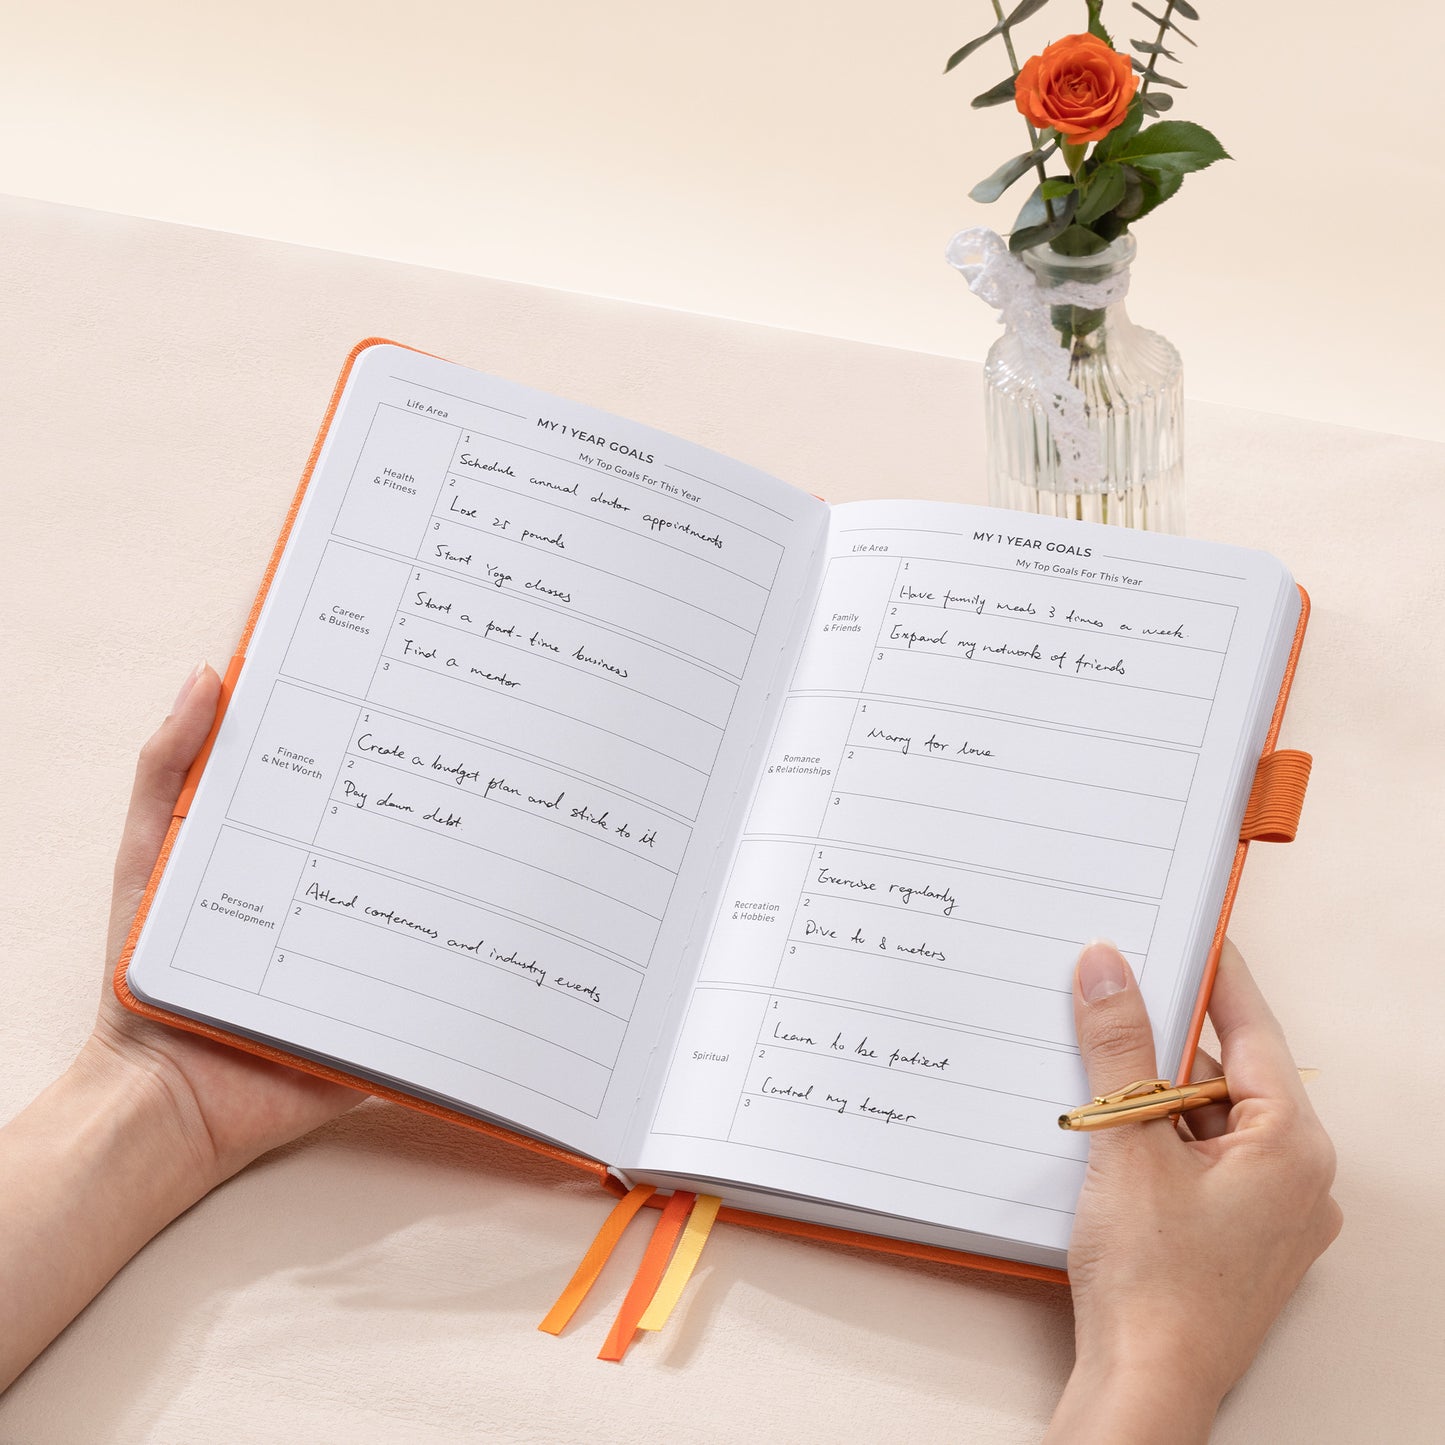 MY 1 YEAR GOALS
Life Area
My Top Goals For This Year
Health
& Fitness
1
Schedule annual doctor appointments
2
Lose 25 pounds
3
Start Yoga classes
Career
& Business
1
Start a part-time business
2
Find a mentor
3
Finance
& Net Worth
1
Create a budget plan and stick to it
2
Pay down debt.
3
Personal
& Development
1
Attend conferences and industry events
2
3
MY 1 YEAR GOALS
Life Area
My Top Goals For This Year
Family
& Friends
1
Have family meals 3 times a week.
2
Expand my network of friends
3
Romance
& Relationships
1
Marry for love
2
3
Recreation
& Hobbies
1
Exercise regularly
2
Dive to 8 meters
3
Spiritual
1
Learn to be patient
2
Control my temper
3